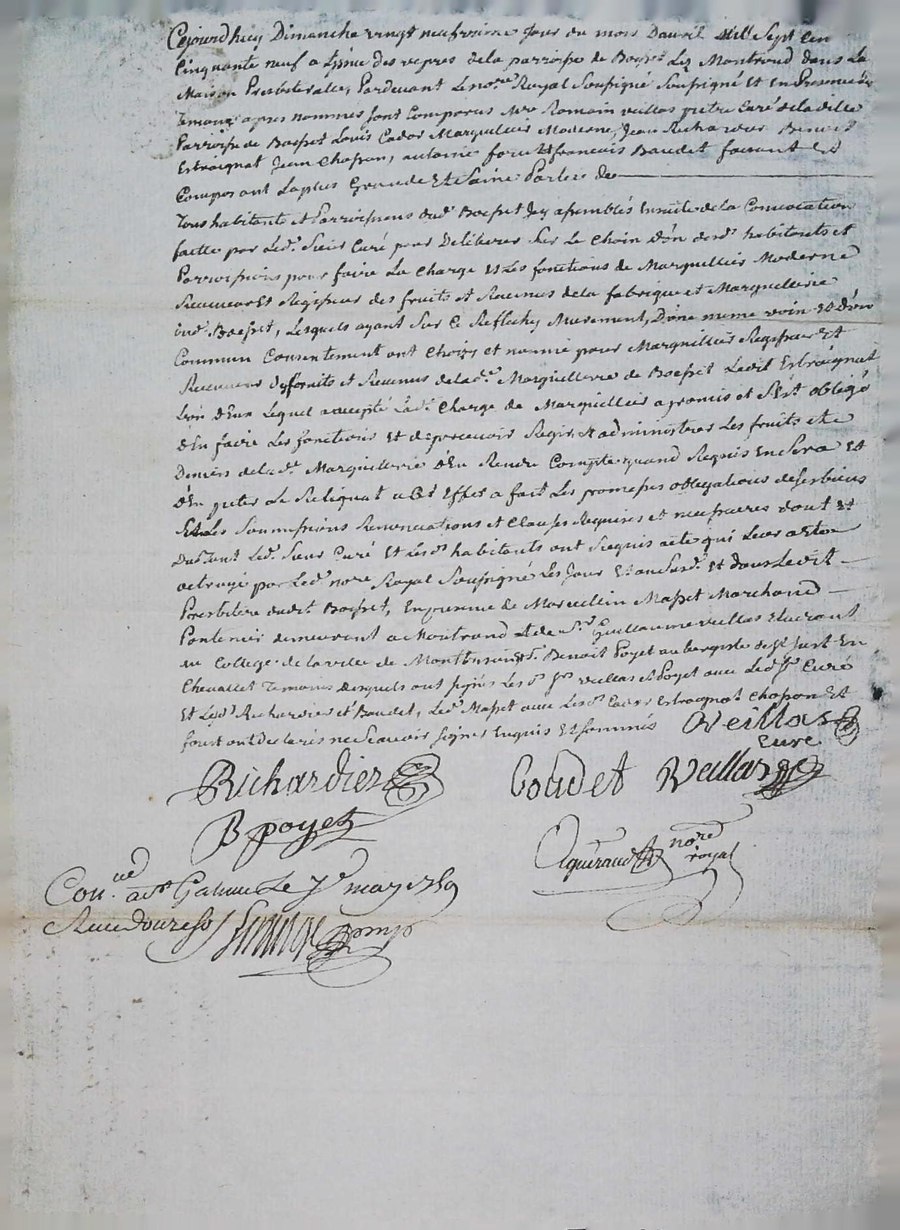 Cejourdhuy Dimanche vingt neufvieme Jour du mois Davril Mil Sept Cen
Cinquante neuf a Lissue des vepres dela parroisse de Boesset Lez Montrond dans La
Maison Presbiteralle, Pardevant Le nore Royal Soussigné Et En Presence des
temoins apres nommés sont Comparus Mre Romain veillas pretre Curé deladitte
Parroisse de Boesset Louis Cador Marguillier Moderne, Jean Richardier Benoit
Estraignat Jean Chapon, antoine forest francois Baudet faisant Et
Composant La plus Grande Et Saine Partie de
Tous habitants et Parroissiens dud. Boesset Jcy assemblés Ensuite de la Convocation
faitte par Led. Sieur Curé pour Deliberer Sur Le Choix d'un desd. habitants et
Parroissiens pour faire La Charge Et Les fonctions de Marguillier Moderne
Receveur Et Regisseur des fruits et Revenus dela fabrique et Marguillerie
dud. Boesset, Lesquels ayant Sur Ce Reflechy Murement, D'une meme voix Et d'un
Commun Consentement ont Choisy et nommé pour Marguillier Regisseur Et
Receveur des fruits et Revenus delad. Marguillerie de Boesset Ledit Estraignat
L'un d'Eux Lequel accepté Lad. Charge de Marguillier a promis et S'est obligé
d'En faire Les fonctions Et de percevoir Regir et administrer Les fruits et
Deniers delad. Marguillerie d'En Rendre Compte quand Requis En Sera Et
d'En payer Le Reliquat a Cet Effet a fait Les promesses obligations deses biens
Et Les Soumissions Renonciations et Clauses Requises et necessaires dont Et
Du tout Led. Sieur Curé Et Lesd. habitants ont Requis acte qui Leur a Eté
octroyé par Led. nore Royal Soussigné Les Jour Et an Susd. Et dans Ledit
Presbitere dudit Boesset, En presence de Marcellin Masset Marchand
demeurant a Montrond Et de Sr Guillaume veillas Etudiant
au College de la ville de Montbrison Et Sr Benoit Poyet aubergiste de St Just En
Chevallet temoins desquels ont signés Les Srs veillas et Poyet avec Led. Sr Curé
Et Lesd. Richardier et Baudet, Led. Masset avec Lesd. Cador Estraignat Chapon Et
forest ont declarés ne Scavoir Signer Enquis Et Sommés Veillas
Curé
Richardier Boudet Veillas
B poyet
nore
royal
Con.né a St Galmier Le 7e may 1759
Receu douze sols